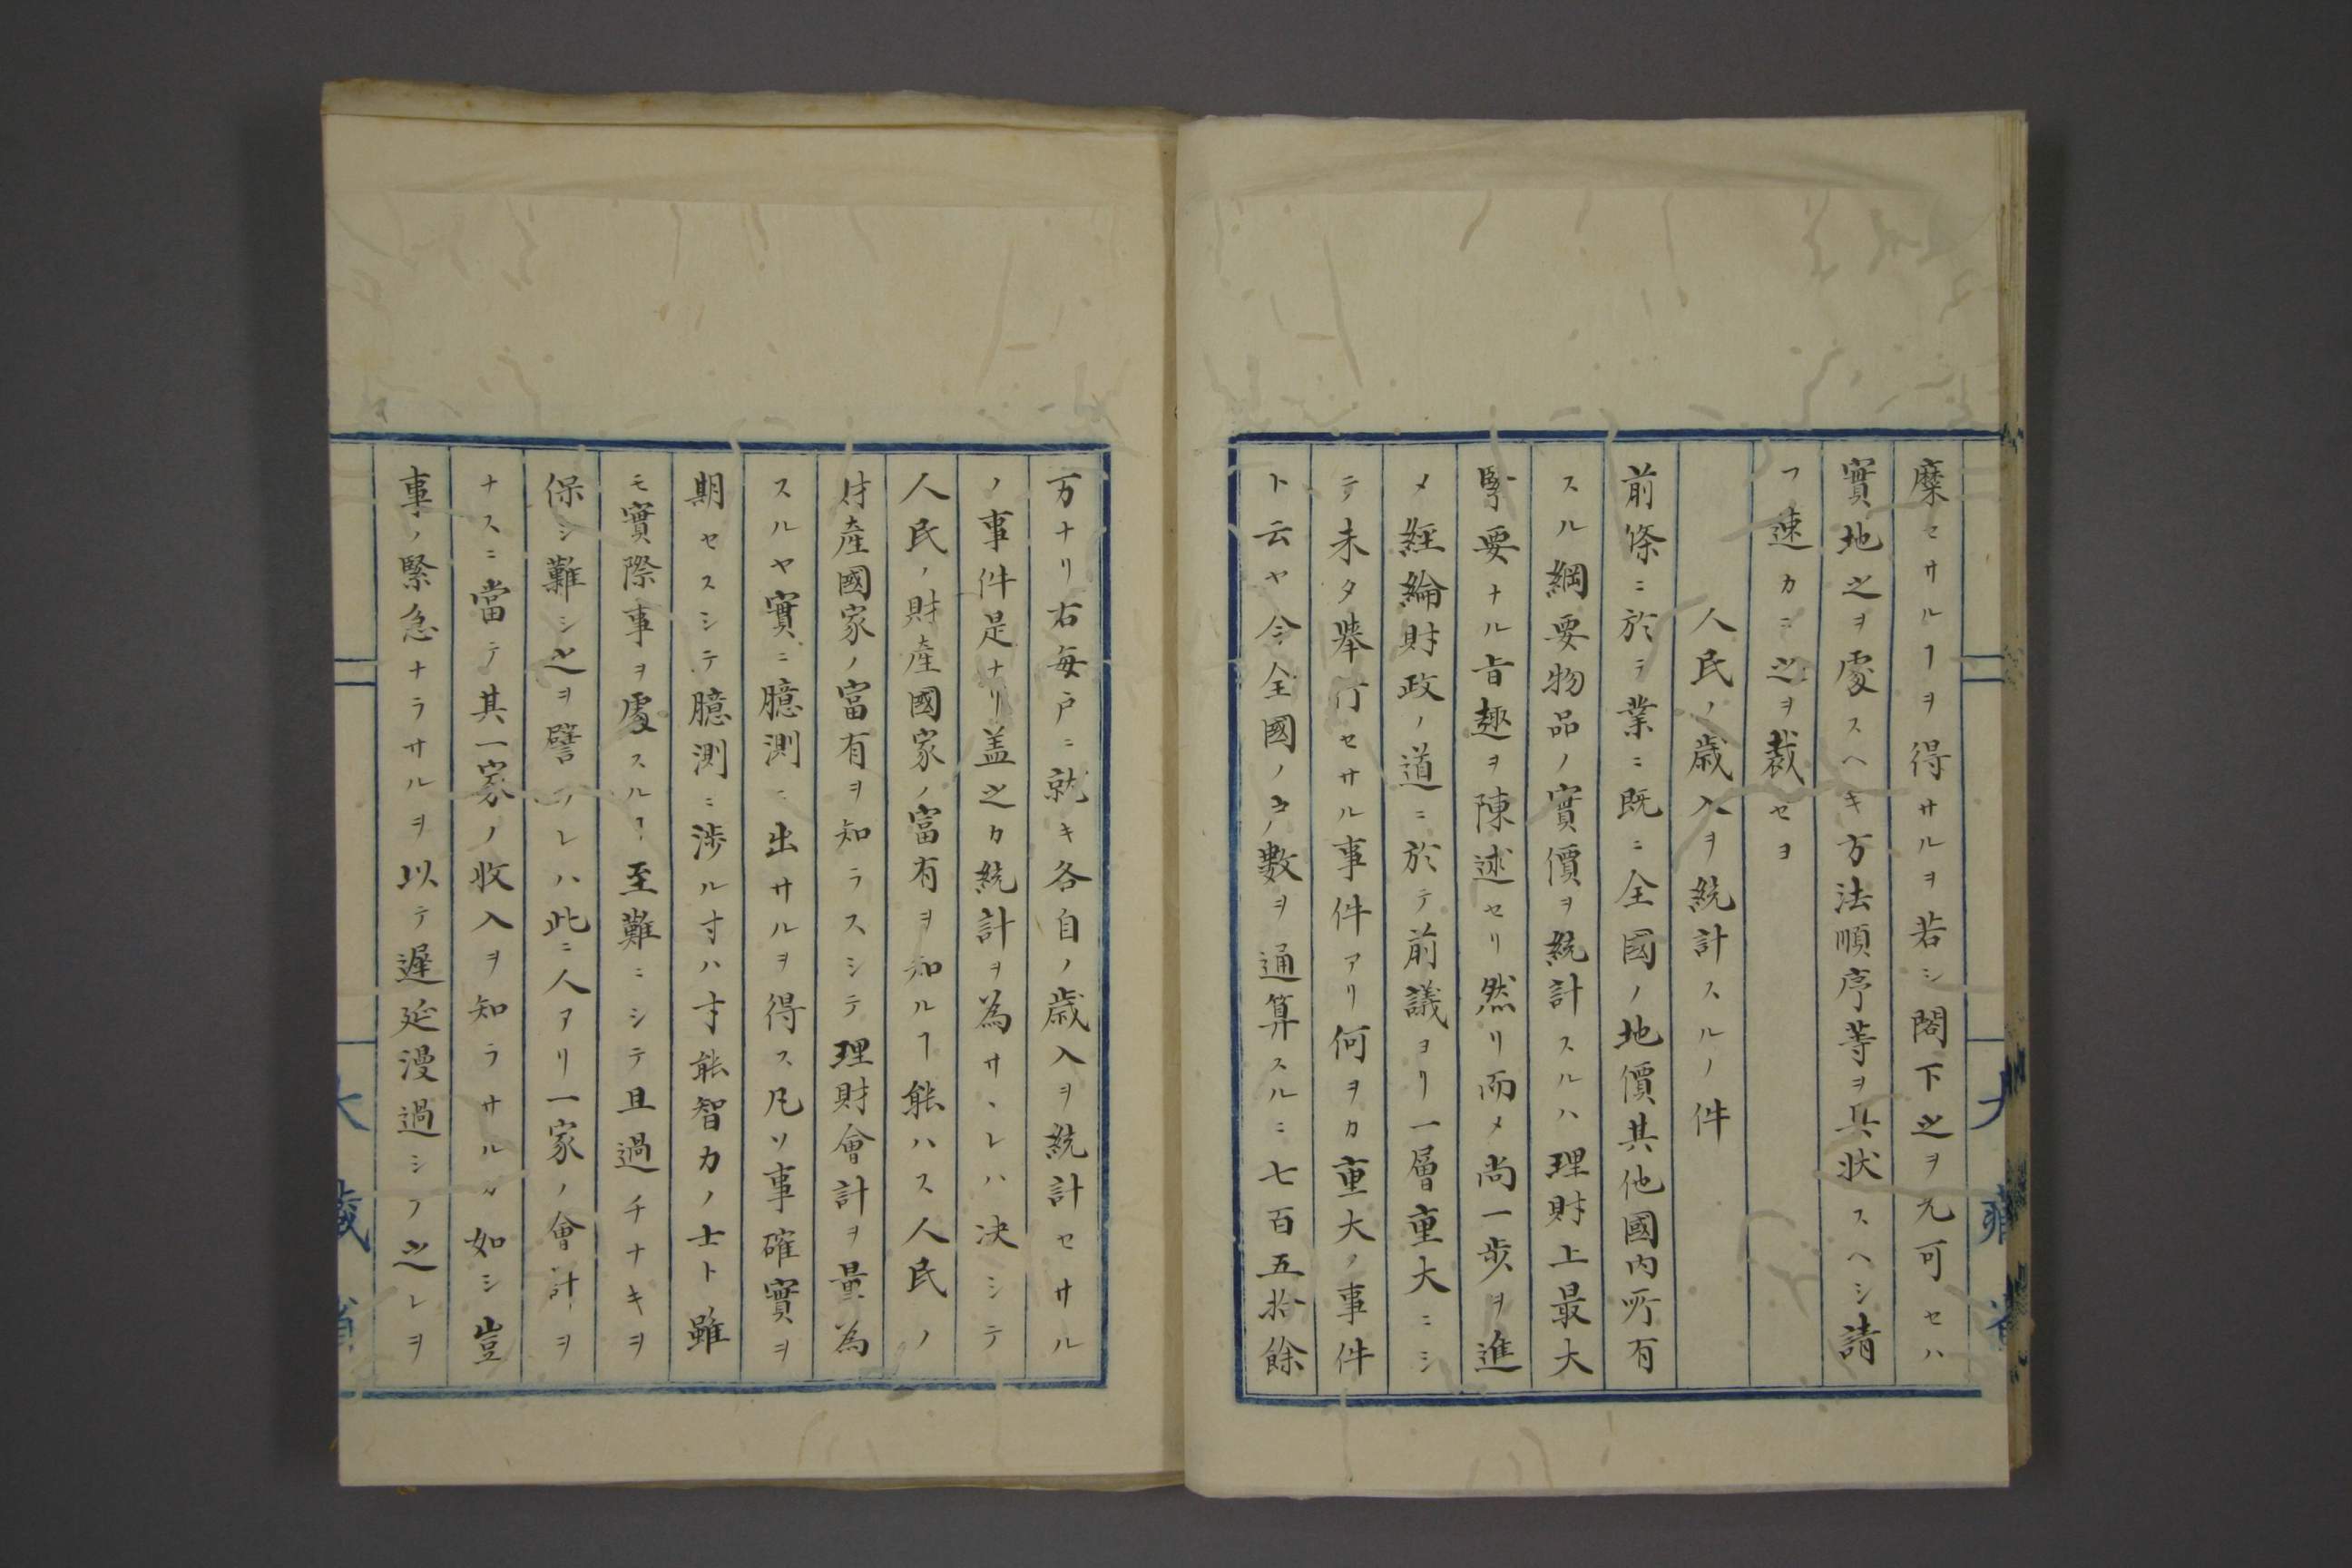 糜セサルヿヲ得サルヲ若シ閣下之ヲ允可セハ
實地之ヲ處スヘキ方法順序等ヲ具状スヘシ請
フ速カニ之ヲ裁セヨ
人民ノ歳入ヲ統計スルノ件
前條ニ於テ業ニ既ニ全國ノ地價其他國内所有
スル綱要物品ノ實價ヲ統計スルハ理財上最大
緊要ナル旨趣ヲ陳述セリ然リ而メ尚一歩ヲ進
メ經綸財政ノ道ニ於テ前議ヨリ一層重大ニシ
テ未タ擧行セサル事件アリ何ヲカ重大ノ事件
ト云ヤ今全國ノ戸數ヲ通算スルニ七百五拾餘
大藏省
万ナリ右毎戸ニ就キ各自ノ歳入ヲ統計セサル
ノ事件是ナリ盖之カ統計ヲ為サヽレハ決シテ
人民ノ財産國家ノ富有ヲ知ルヿ能ハス人民ノ
財産國家ノ富有ヲ知ラスシテ理財會計ヲ量為
スルヤ實ニ臆測ニ出サルヲ得ス凡ソ事確實ヲ
期セスシテ臆測ニ渉ル寸ハ才能智力ノ士ト雖
モ實際事ヲ處スルヿ至難ニシテ且過チナキヲ
保シ難シ之ヲ譬フレハ此ニ人アリ一家ノ會計ヲ
ナスニ當テ其一家ノ收入ヲ知ラサルカ如シ豈
事ノ緊急ナラサルヲ以テ遲延漫過シフ之レヲ
大藏省